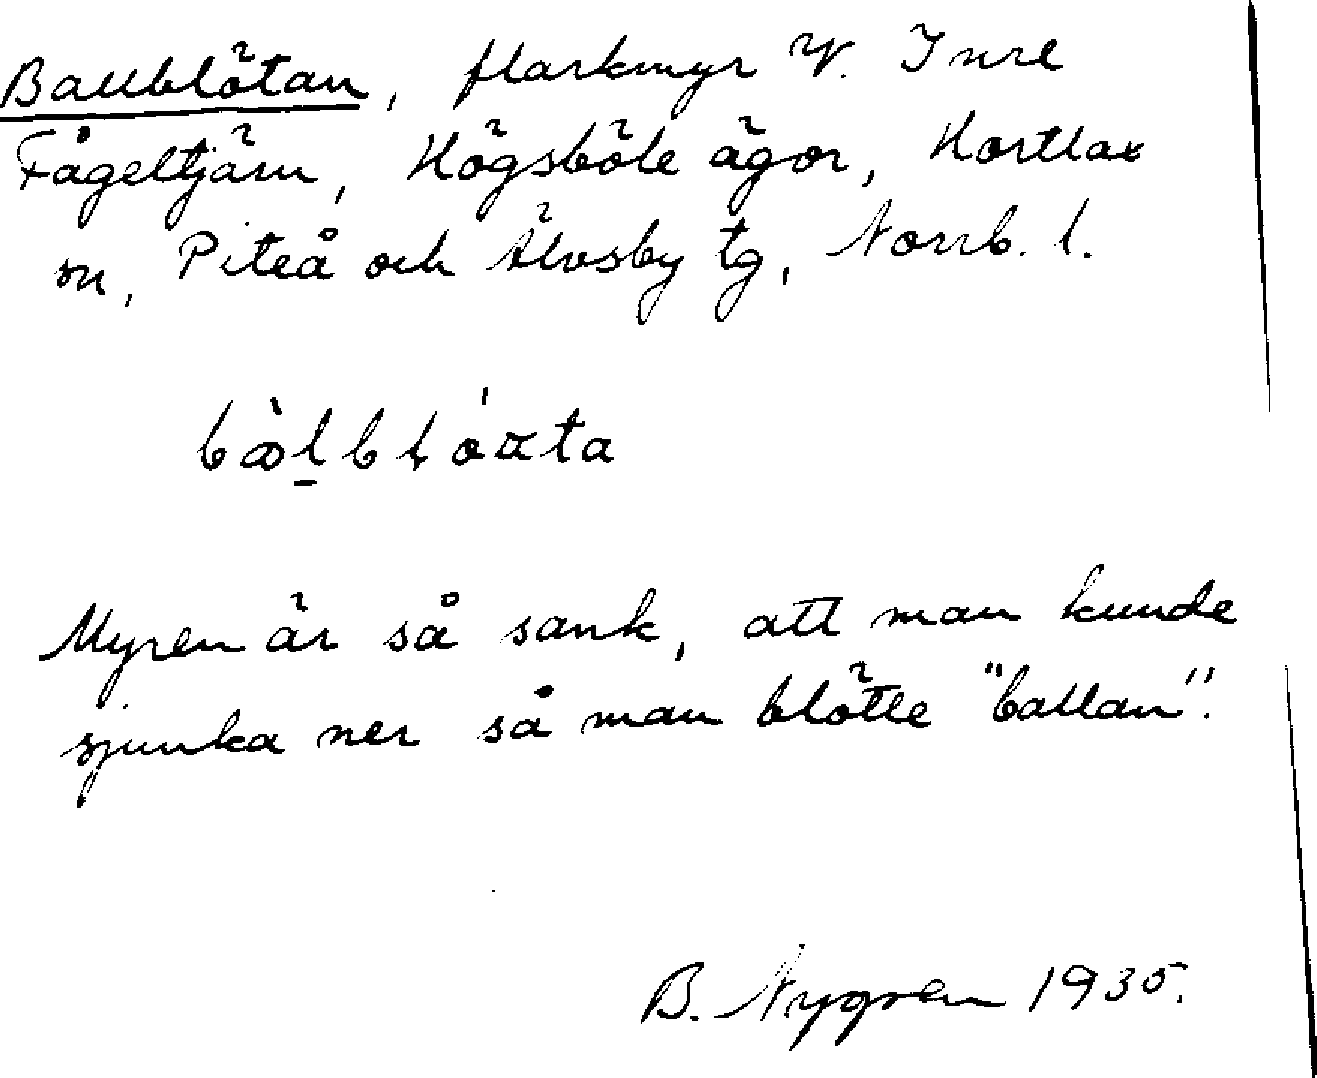 Ballblötan, flarkmyr V. Inre
Fågeltjärn, Högsböle ägor, Hortlax
sn, Piteå och Älvsby tg, Norrb. l.
Myren är så sank, att man kunde
sjunka ner så man blötte "ballan".
B. Nygren 1935.